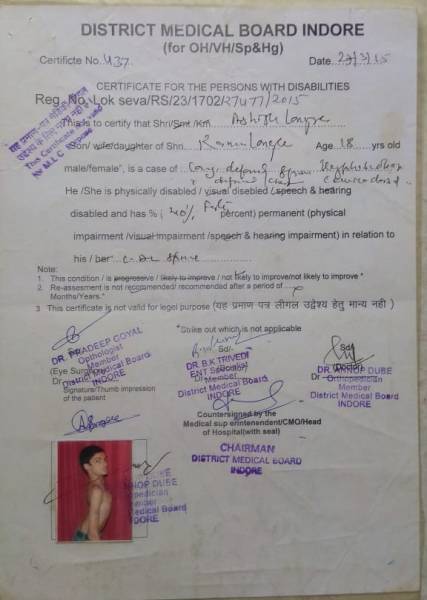 DISTRICT MEDICAL BOARD INDORE
(for OH/VH/Sp&Hg)
Certificte No. 437 Date. 23/3/15
CERTIFICATE FOR THE PERSONS WITH DISABILITIES
Reg. No. Lok seva/RS/23/1702/27477/2015
This to certify that Shri/Smt./Km.
Son/ wife/daughter of Shri. Age 18 yrs old
male/female*, is a case of
He /She is physically disabled / visual disabled /speech & hearing
disabled and has % ( 40% Forty percent) permanent (physical
impairment /visual impairment /speech & hearing impairment) in relation to
his / ber spine
Note:
1. This condition / is progressive / likely to improve / not likely to improve/not likely to improve *
2. Re-assesment is not recomended/ recommended after a period of
Months/Years.*
3 This certificate is not valid for legal purpose (यह प्रमाण पत्र लीगल उद्देश्य हेतु मान्य नहीं )
This Certificate not valid
for M.L.C
*Strike out which is not applicable
DR. PRADEEP GOYAL
Opthologist
Member
District Medical Board
INDORE
(Eye Sur
Dr
Signature/Thumb impression
of the patient
Sd/-
DR. B.K TRIVEDI
ENT Specialist
Member
District Medical Board
INDORE
Sd/
(Doctor)
Dr
DR. MANOP DUBE
Orthopedician
Member
District Medical Board
INDORE
Countersigned by the
Medical sup erintenendent/CMO/Head
of Hospital(with seal)
CHAIRMAN
DISTRICT MEDICAL BOARD
INDORE
NOP DUBE
opedician
ember
edical Board
INDORE